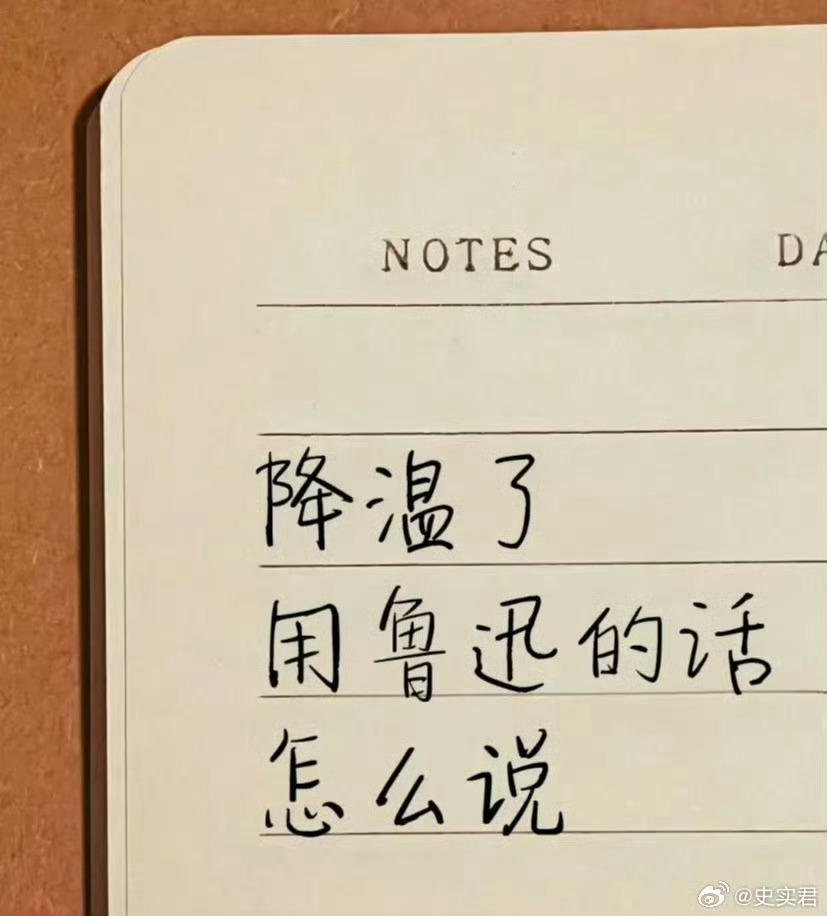 NOTES DA
降温了
用鲁迅的话
怎么说
@史实君